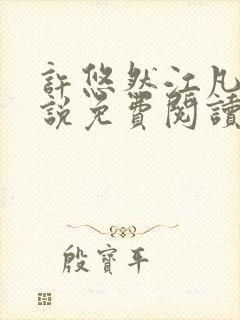 許悠然江凡
說免費閱讀
殷寶平